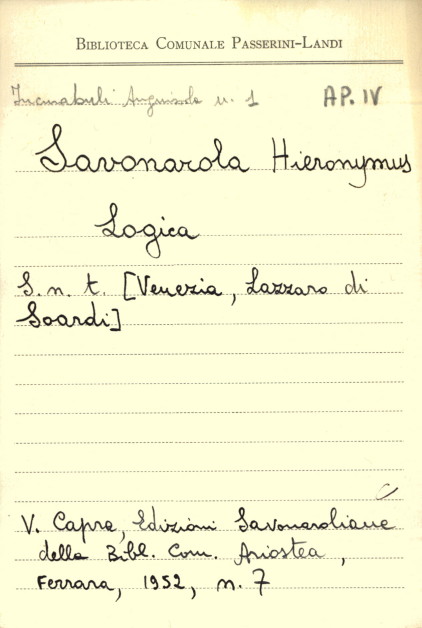 Biblioteca Comunale Passerini-Landi
Incunabuli Anguissola n. 1 AP. IV
Savonarola Hieronymus
Logica
S. n. t. [Venezia, Lazzaro di
Soardi]
V. Capra, Edizioni Savonaroliane
della Bibl. Com. Ariostea,
Ferrara, 1952, n. 7